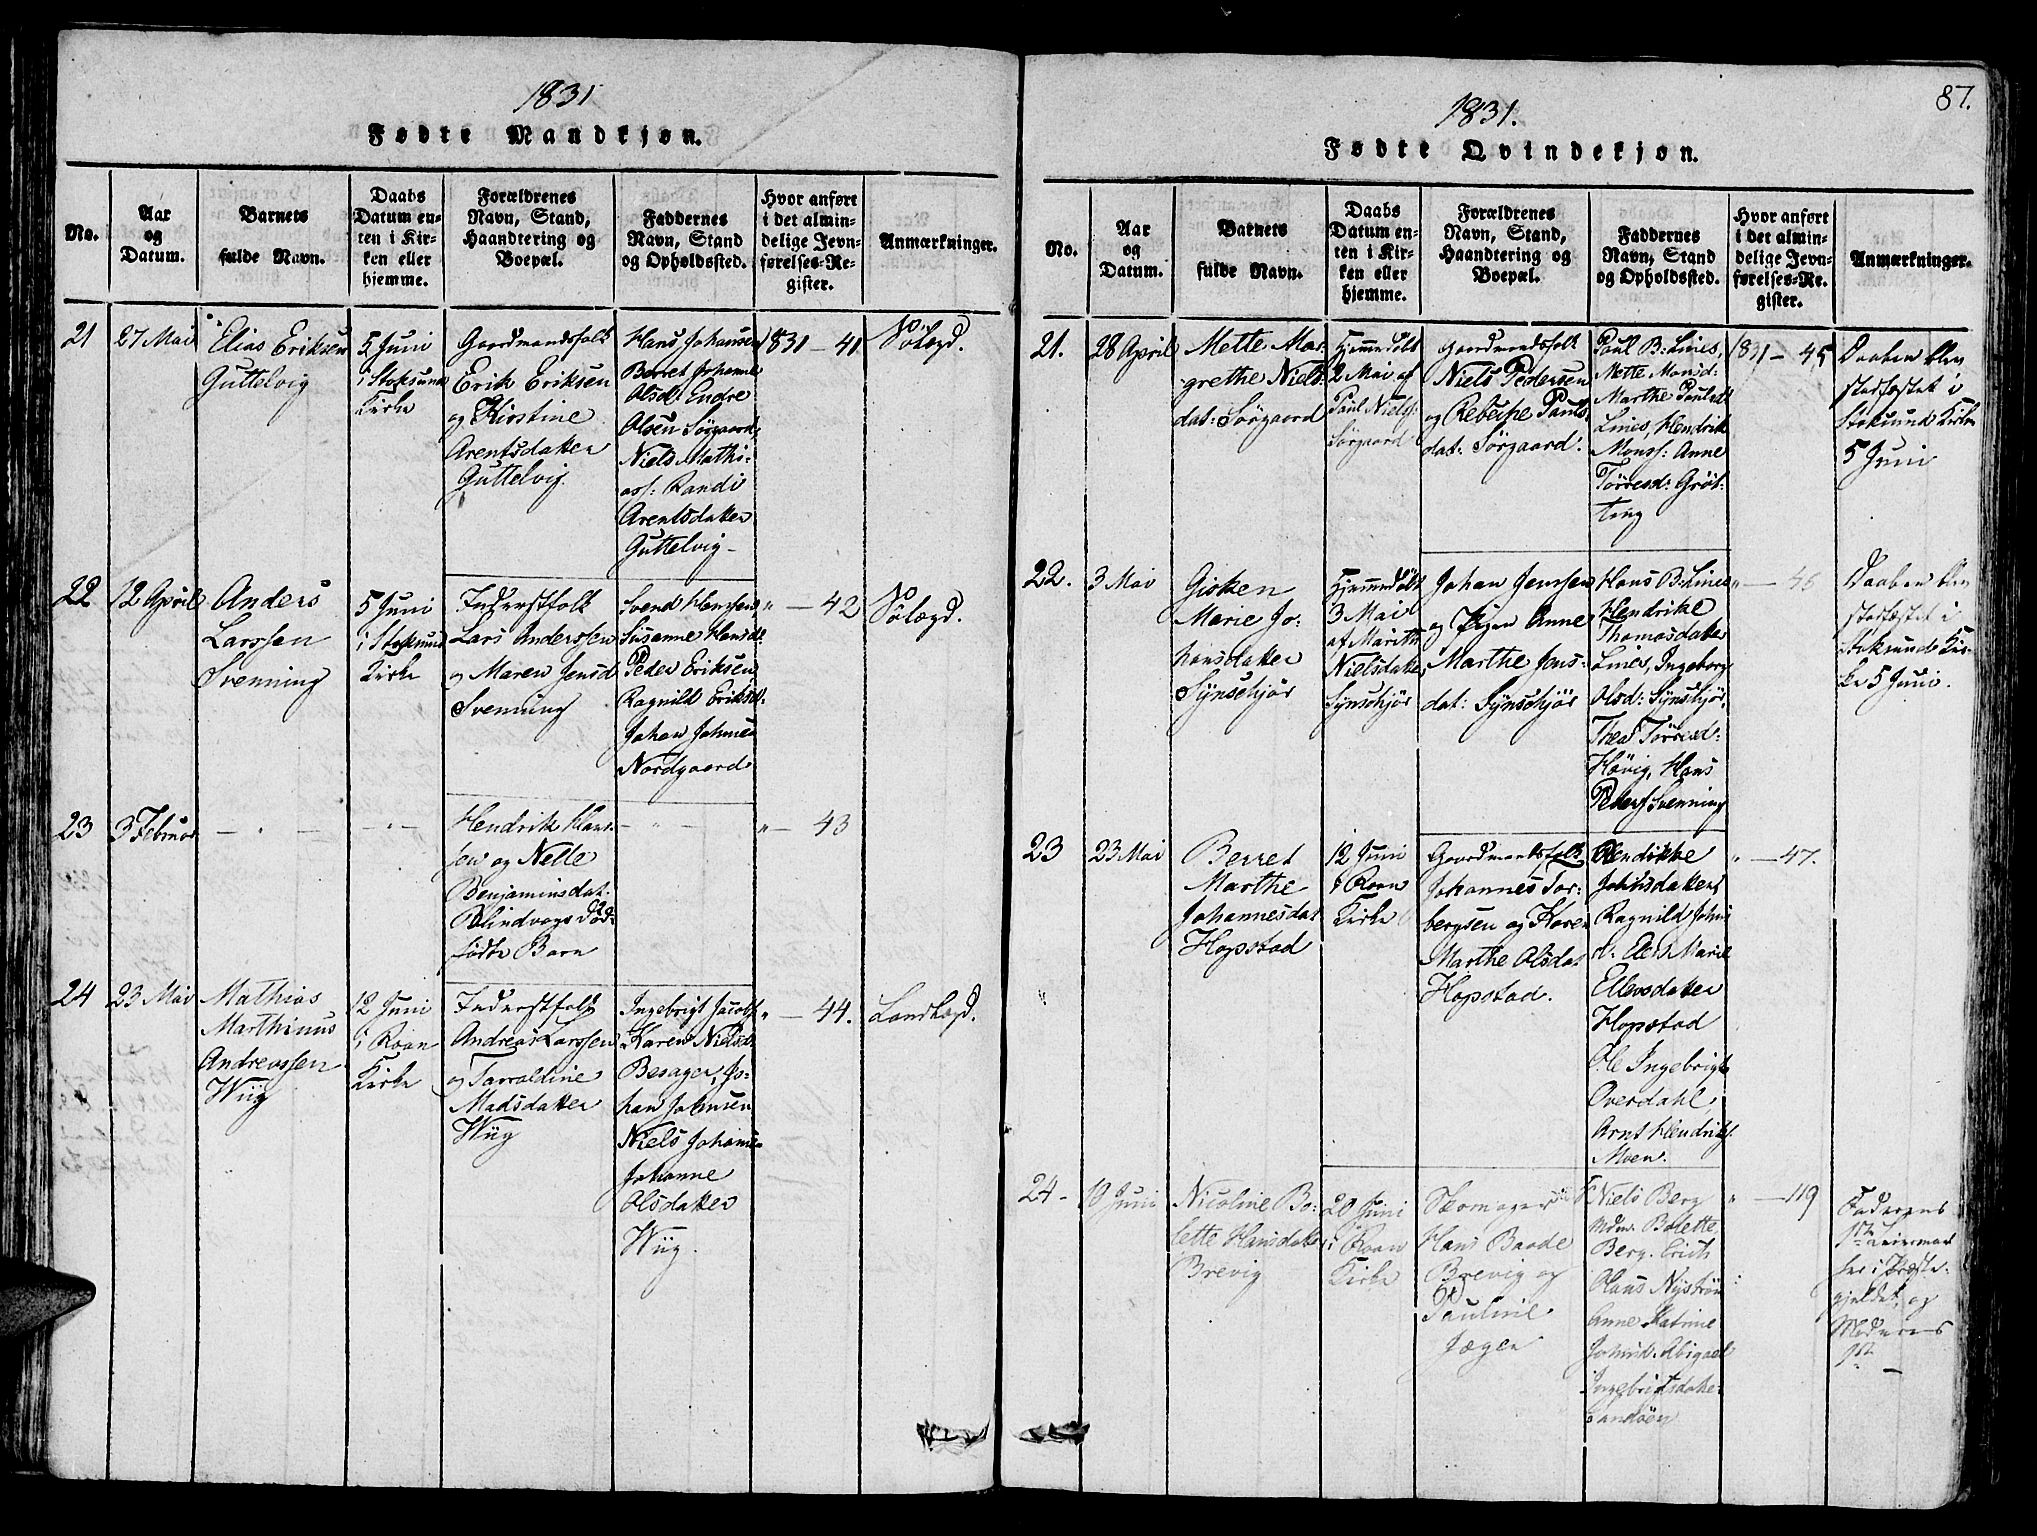 1831
Fødte Mandkjøn.
No.
Aar
og
Datum.
Barnets
fulde Navn.
Daabs
Datum en-
ten i Kir-
ken eller
hjemme.
Forældrenes
Navn, Stand,
Haandtering og
Boepæl.
Faddernes
Navn, Stand
og Opholdssted.
Hvor anført
i det almin-
delige Jevn-
førelses-Re-
gister.
Anmærkninger.
21
27 Mai
Elias Eriksen
Guttelvig
5 Juni
i Stoksund
Kirke
Gaardmandsfolk
Erik Eriksen
og Kirstine
Arentsdatter
Guttelvig
Hans Johansen
Berret Johanne
Olsd: Endre
Olsen Sørgaard,
Niels Mathi-
ass: Randi
Arentsdatter
Guttelvig
1831 - 41
Sölægd.
22
12 April
Anders
Larssen
Svenning
5 Juni
i Stoksund
Kirke
Inderstfolk
Lars Anderssen
og Maren Jensd
Svenning
Svend Hemsen
Susanne Hansd:
Peder Eriksen
Ragnild Eriksd:
Johan Johnsen
Nordgaard
" - 42
Sölægd.
23
3 Februar
- " -
- " -
Hendrik Hans-
sen og Nelle
Benjaminsdat.
Blindvogs död-
födte Barn
- " -
" - 43
24
23 Mai
Mathias
Marthinus
Andreassen
Wiig
12 Juni
i Roan
Kirke
Inderstfolk
Andreas Larssen
og Tarraldine
Madsdatter
Wiig
Ingebrigt Jacobs:
Karen Nielsd:
Besager, Jo-
han Johnsen
Niels Johanse
Johanne
Olsdatter
Wiig.
" - 44.
Landlægd.
87.
1831.
Fødte Qvindekjøn.
No.
Aar
og
Datum.
Barnets
fulde Navn.
Daabs
Datum en-
ten i Kir-
ken eller
hjemme.
Forældrenes
Navn, Stand,
Haandtering og
Boepæl.
Faddernes
Navn, Stand
og Opholdssted.
Hvor anført
i det almin-
delige Jevn-
førelses-Re-
gister.
Anmærkninger.
21.
28 April
Mette Mar-
grethe Niels-
dat: Sørgaard
Hjemmedöbt
2 Mai af
Paul Niels:
Sørgaard
Gaardmandsfolk
Niels Pedersen
og Rebecke Pauls
dat: Sørgaard.
Paul B: Lines,
Mette Monsd:
Marthe Paulsd:
Lines, Hendrik
Monss: Anne
Törresd: Gröt-
ting
1831 - 45
Daaben blev
stadfæstet i
Stoksund Kirke
5 Juni
22.
3 Mai
Gisken
Marie Jo-
hansdatter
Synschjör
Hjemmedöbt
3 Mai
af Marith
Nielsdatter
Synschjör
Johan Jenssen
og Anne
Marthe Jens-
dat: Synschjör
Hans B: Lines
Hendrikke
Thomasdatter
Lines, Ingeborg
Olsd: Synschjör,
Thea Törresd:
Hövig, Hans
Peders: Svenning
" - 46
Daaben blev
stadfæstet i
Stoksunds Kir-
ke 5 Juni.
23
23 Mai
Berret
Marthe
Johannesdat
Hopstad
12 Juni
i Roan
Kirke
Gaardmandsfolk
Johannes Tor-
bergsen og Karen
Marthe Olsdat
Hopstad.
Hendikke
Johnsdatter
Ragnild Johns
d: Elen Marie
Ellevsdatter
Hopstad
Ole Ingebrigts
Overdahl,
Arnt Hendriks:
Moen.
" - 47.
24
19 Juni
Nicoline Bo-
lette Hansdatter
Brevig
20 Juni
i Roan
Kirke
Skomager
Hans Baade
Brevig og
Pauline
Jæger
Niels Berg
Mdm. Bolette
Berg.
Hans Nyström
Anne Katrine
Johnsd. Abigael
Ingebrigtsdatter
Sandöen
" - 119
Faderens
1ste Leiermaal
her i Præste-
gjeldet, og
Moderens
1ste